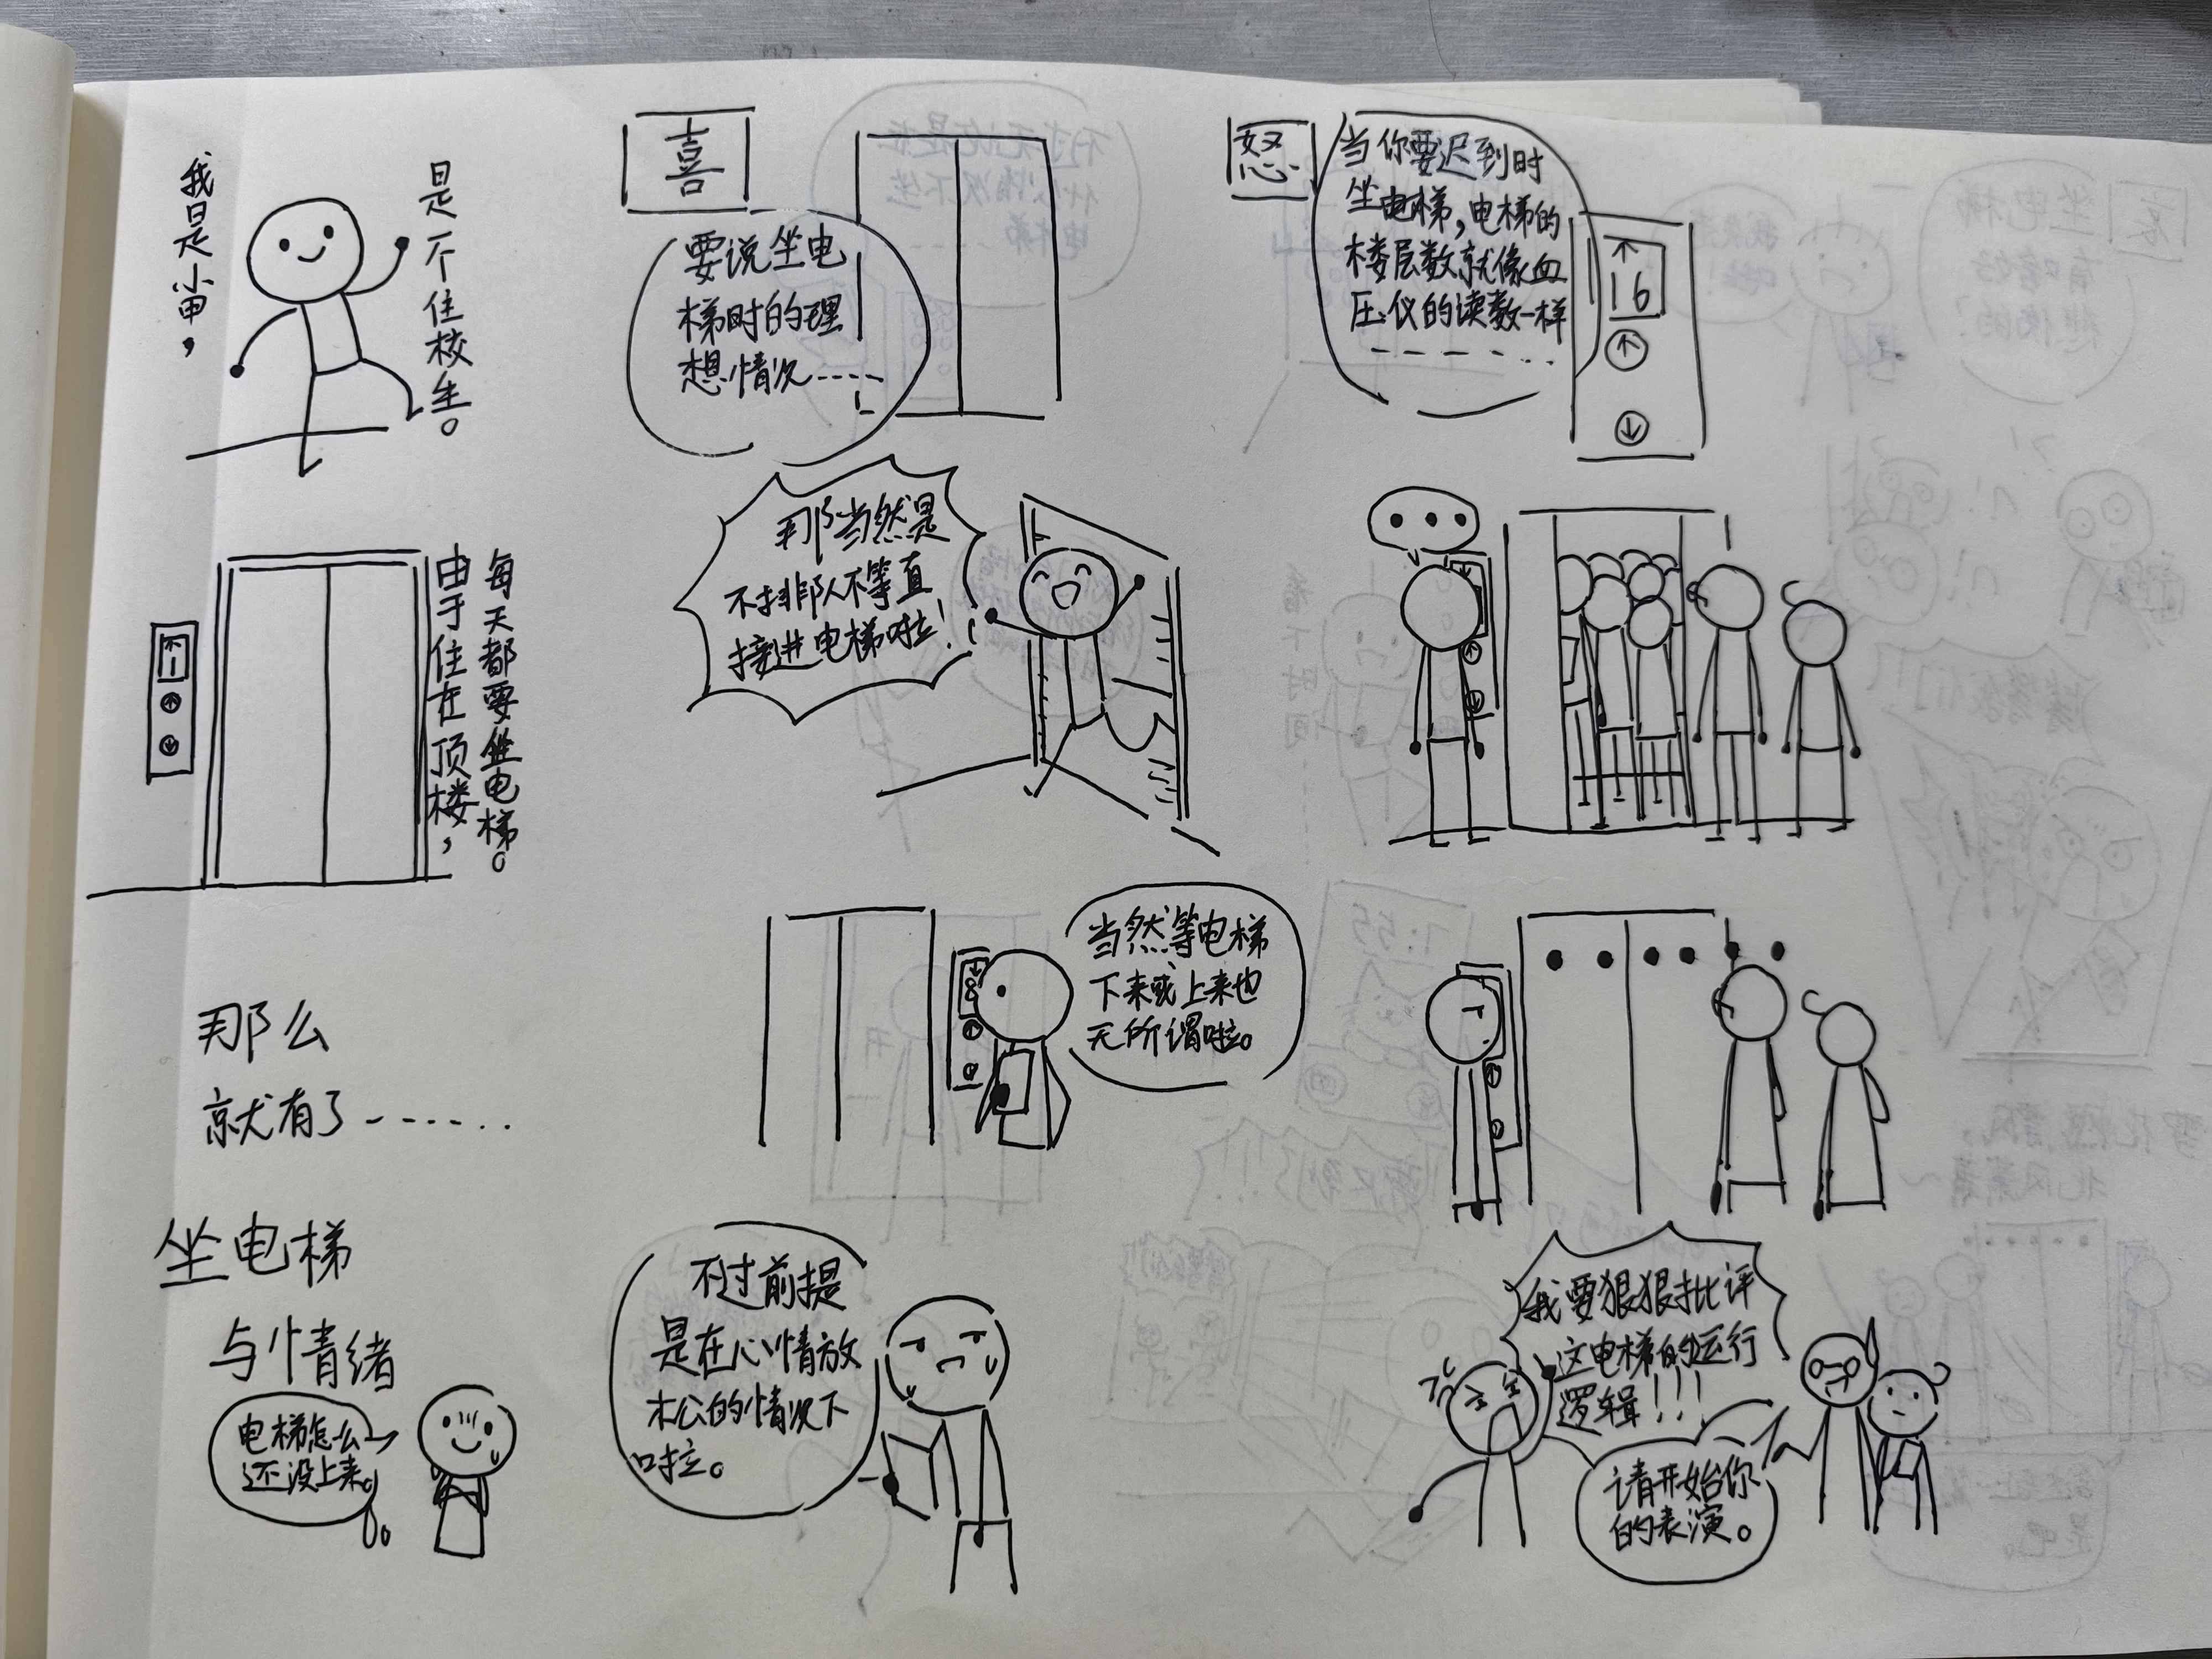 我是小甲，
是一个住校生。
由于住在顶楼，
每天都要坐电梯。
1
那么
就有了-----..
坐电梯
与情绪
电梯怎么
还没上来。
喜
要说坐电
梯时的理
想情况-----
那当然是
不排队不等直
接进电梯啦！
当然等电梯
下来或上来也
无所谓啦。
8
不过前提
是在心情放
松的情况下
啦。
怒
当你要迟到时
坐电梯，电梯的
楼层数就像血
压仪的读数一样
------..
16
...
......
我要狠狠批评
这电梯的运行
逻辑！！！
请开始你
的表演。